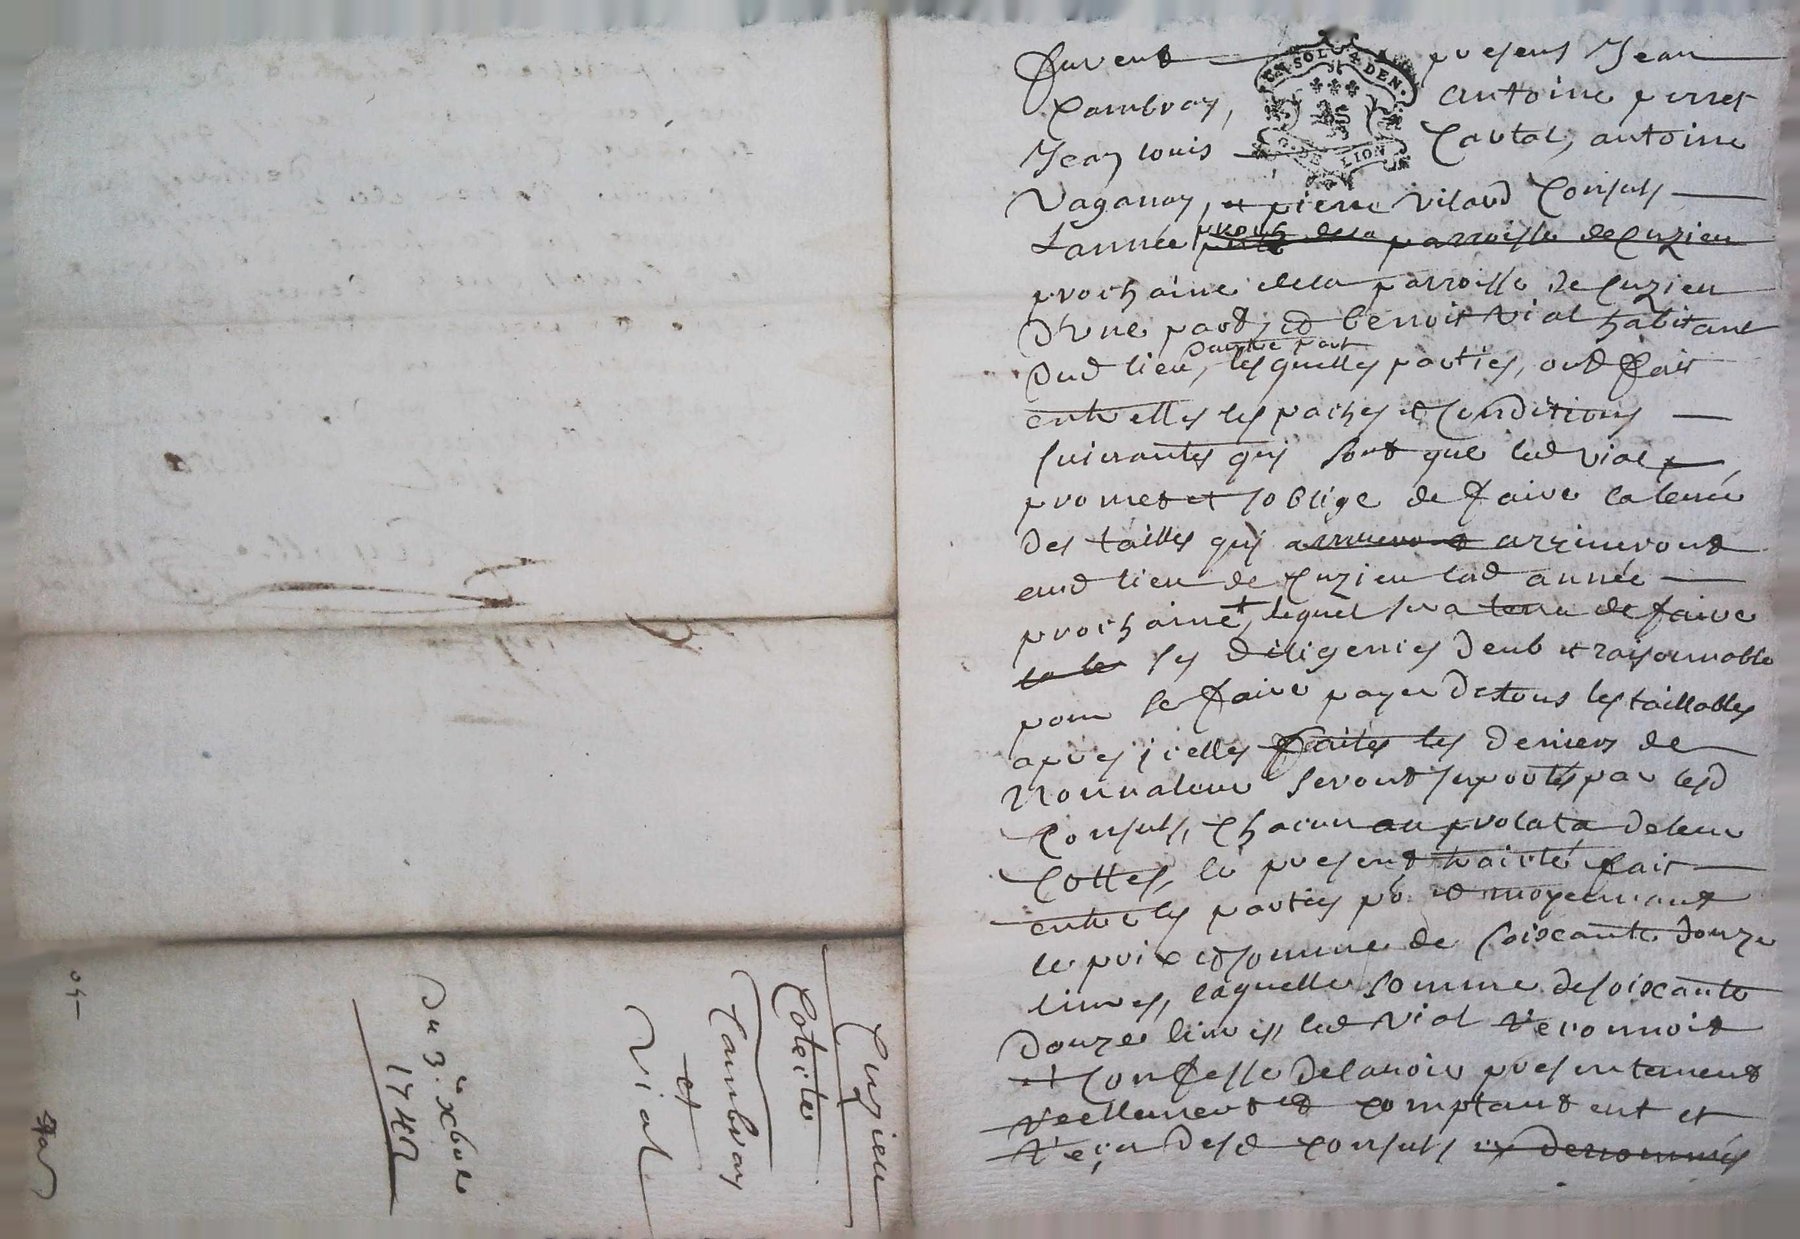 furent presens Jean
Cambray, antoine perret
Jean louis Cartal, antoine
Vaganay, et pierre Vilard Consuls
L'année
prochaine de la parroisse de Cuzieu
d'une part, et benoit Vial habitant
dud lieu, d'autre part lesquelles parties, ont fait
entre elles les paches et Conditions
suivantes qui sont que led vial
promet et soblige de faire la levée
des tailles qui arriveront
aud lieu de Cuzieu lad année
prochaine, lequel sera tenu de faire
ses diligences deub et raisonnable
pour se faire payer de tous les taillables
apres icelles faites les deniers de
Nonvaleur seront suportés par lesd
Consuls, Chacun au prolata de leur
Cottes, le present traicté fait
entre les parties et moyennant
le prix et somme de soiscante douze
livres, laquelle somme de soiscante
douze livres, led Vial reconnoit
et Confesse de lavoir presentement
reellement et comptant eut et
reçu desd consuls
UN SOL 4 DEN.
G. DE LION
Cuzieu
Cotte
Cambray
et
Vial
Du 3.e Xbre